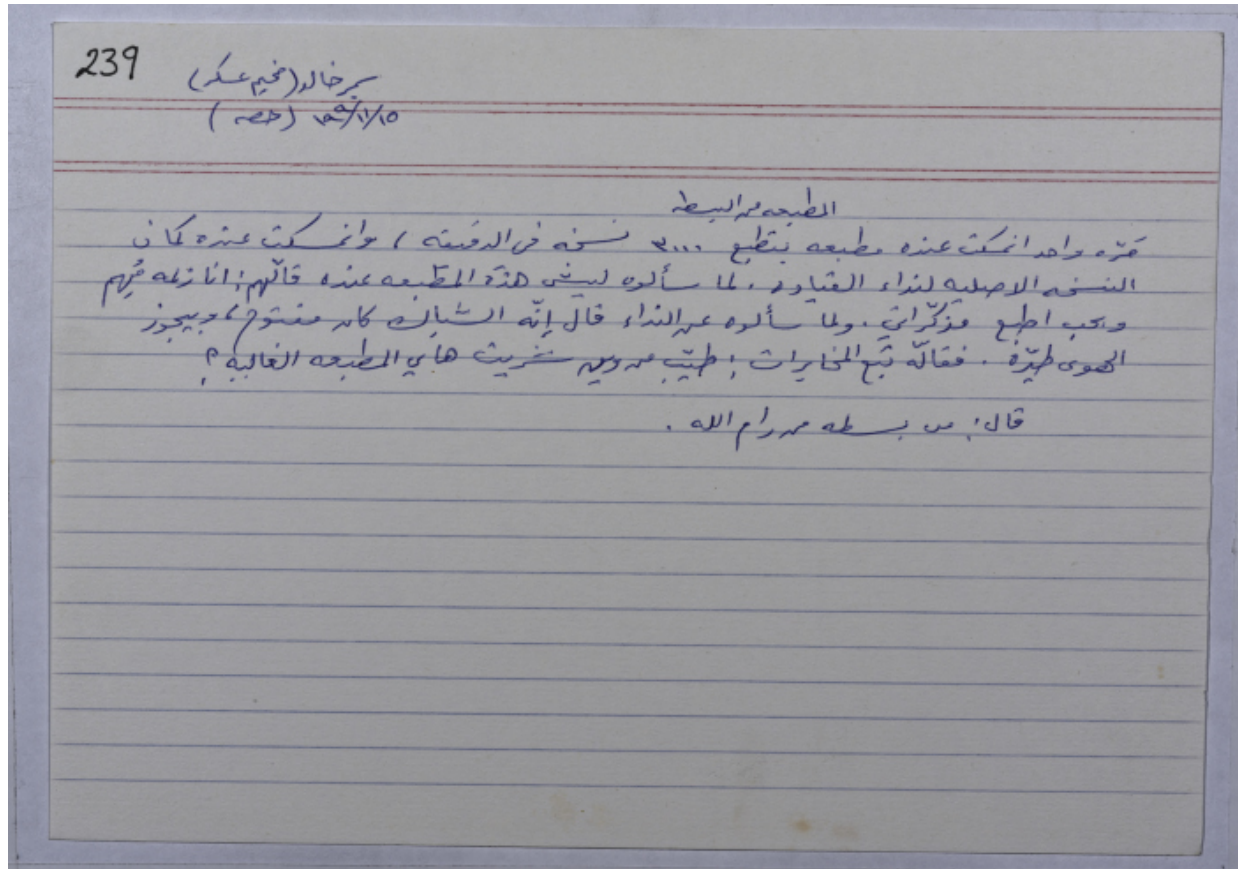 239
بير خالد (مخيم عسكر)
١٩٨٩/١/١٥ (خصه)
المطبعه من البسطه
مَرّه واحد انمسكت عنده مطبعه بتطبع ٣٠٠٠ نسخه في الدقيقه، وانمسكت عنده كمان
النسخه الاصليه لنداء القياده. لما سألوه ليش هذه المطبعه عنده قالّهم: انا زلمه مُهِم
وبحب اطبع مذكّراتي. ولما سألوه عن النداء قال إنّه الشباك كان مفتوح، وبيجوز
الهوى طيّره. فقالّه تَبَع المخابرات: طيّب من وين شريت هاي المطبعه الغاليه؟
قال: من بسطه من رام الله.